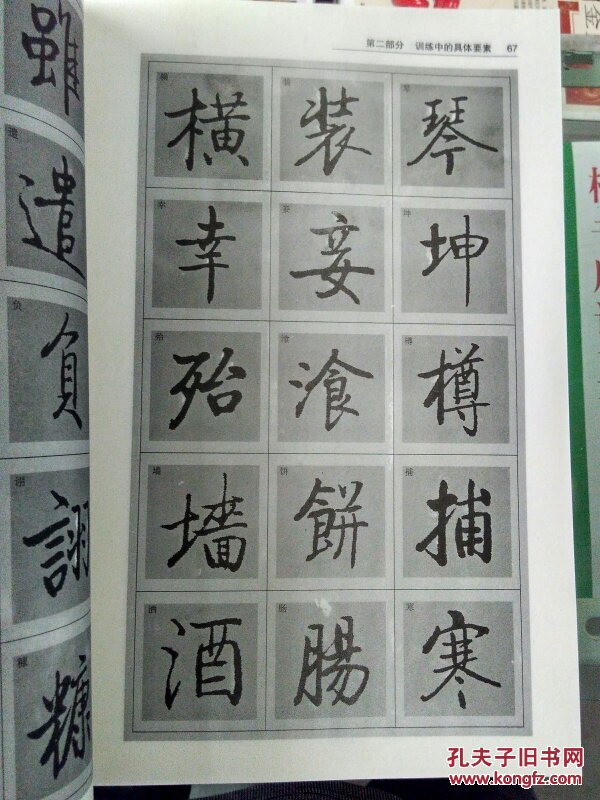 第二部分 训练中的具体要素 67
横 装 琴
幸 妾 坤
殆 飡 樽
墙 饼 捕
酒 肠 寒
橫 裝 琴
幸 妾 坤
殆 湌 樽
墻 餅 捕
酒 腸 寒
雖
遣
遣
负
負
詡
糠
孔夫子旧书网
www.kongfz.com